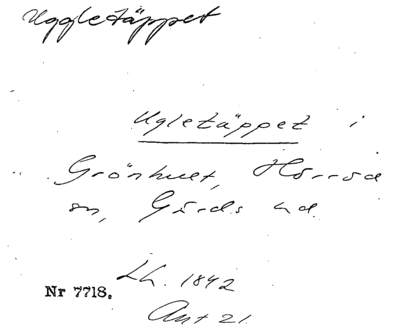 Uggletäppet
Ugletäppet i
Grönhult, Hörröd
sn, Gärds hd.
Lh. 1842
Nr 7718.
Akt 21.